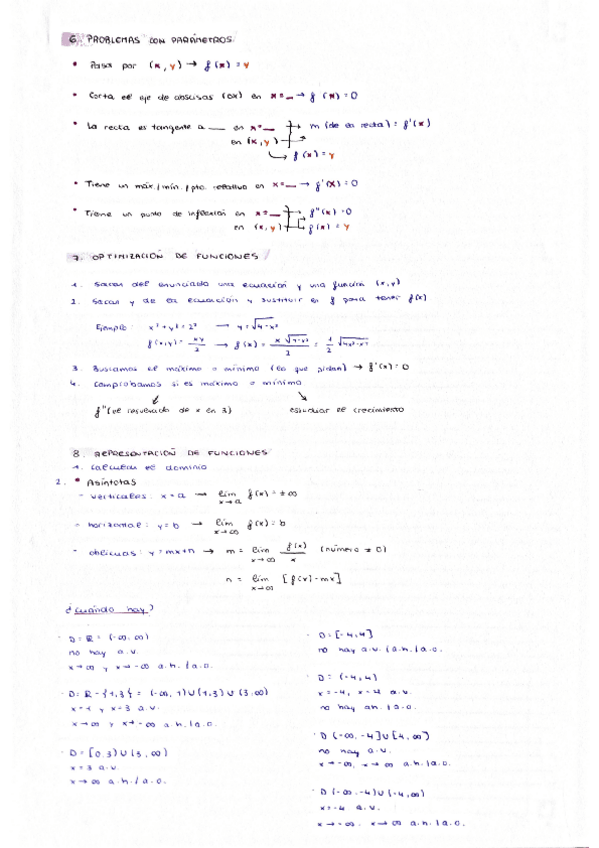 6. PROBLEMAS CON PARÁMETROS
• Pasa por (x, y) → f(x) = y
• Corta el eje de abscisas (OX) en x = _ → f(x) = 0
• La recta es tangente a ___ en x = _ → m (de la recta) = f'(x)
en (x, y)
→ f(x) = y
• Tiene un máx./mín./pto. relativo en x = _ → f'(x) = 0
• Tiene un punto de inflexión en x = _ → f''(x) = 0
en (x, y) → f(x) = y
7. OPTIMIZACIÓN DE FUNCIONES
1. Sacar del enunciado una ecuación y una función (x, y)
2. Sacar y de la ecuación y sustituir en f para tener f(x)
Ejemplo: x² + y² = 2² → y = √4-x²
f(x,y) = xy/2 → f(x) = x√4-x²/2 = 1/2 √4x²-x⁴
3. Buscamos el máximo o mínimo (lo que pidan) → f'(x) = 0
4. Comprobamos si es máximo o mínimo
f''(el resultado de x en 3) estudiar el crecimiento
8. REPRESENTACIÓN DE FUNCIONES
1. Calcular el dominio
2. • Asíntotas
- verticales: x = a → lim x→a f(x) = ± ∞
- horizontal: y = b → lim x→∞ f(x) = b
- oblicuas: y = mx + n → m = lim x→∞ f(x)/x (número ≠ 0)
n = lim x→∞ [f(x) - mx]
¿Cuándo hay?
· D = R = (-∞, ∞)
no hay a.v.
x→∞ y x→-∞ a.h. / a.o.
· D = R - {1,3} = (-∞, 1) ∪ (1,3) ∪ (3, ∞)
x=1 y x=3 a.v.
x→∞ y x→-∞ a.h. / a.o.
· D = [0,3) ∪ (3, ∞)
x = 3 a.v.
x→∞ a.h. / a.o.
· D = [-4,4]
no hay a.v. / a.h. / a.o.
· D = (-4,4)
x = -4, x = 4 a.v.
no hay a.h. / a.o.
· D (-∞, -4] ∪ [4, ∞)
no hay a.v.
x→-∞, x→∞ a.h. / a.o.
· D (-∞, -4) ∪ (-4, ∞)
x = -4 a.v.
x→-∞, x→∞ a.h. / a.o.